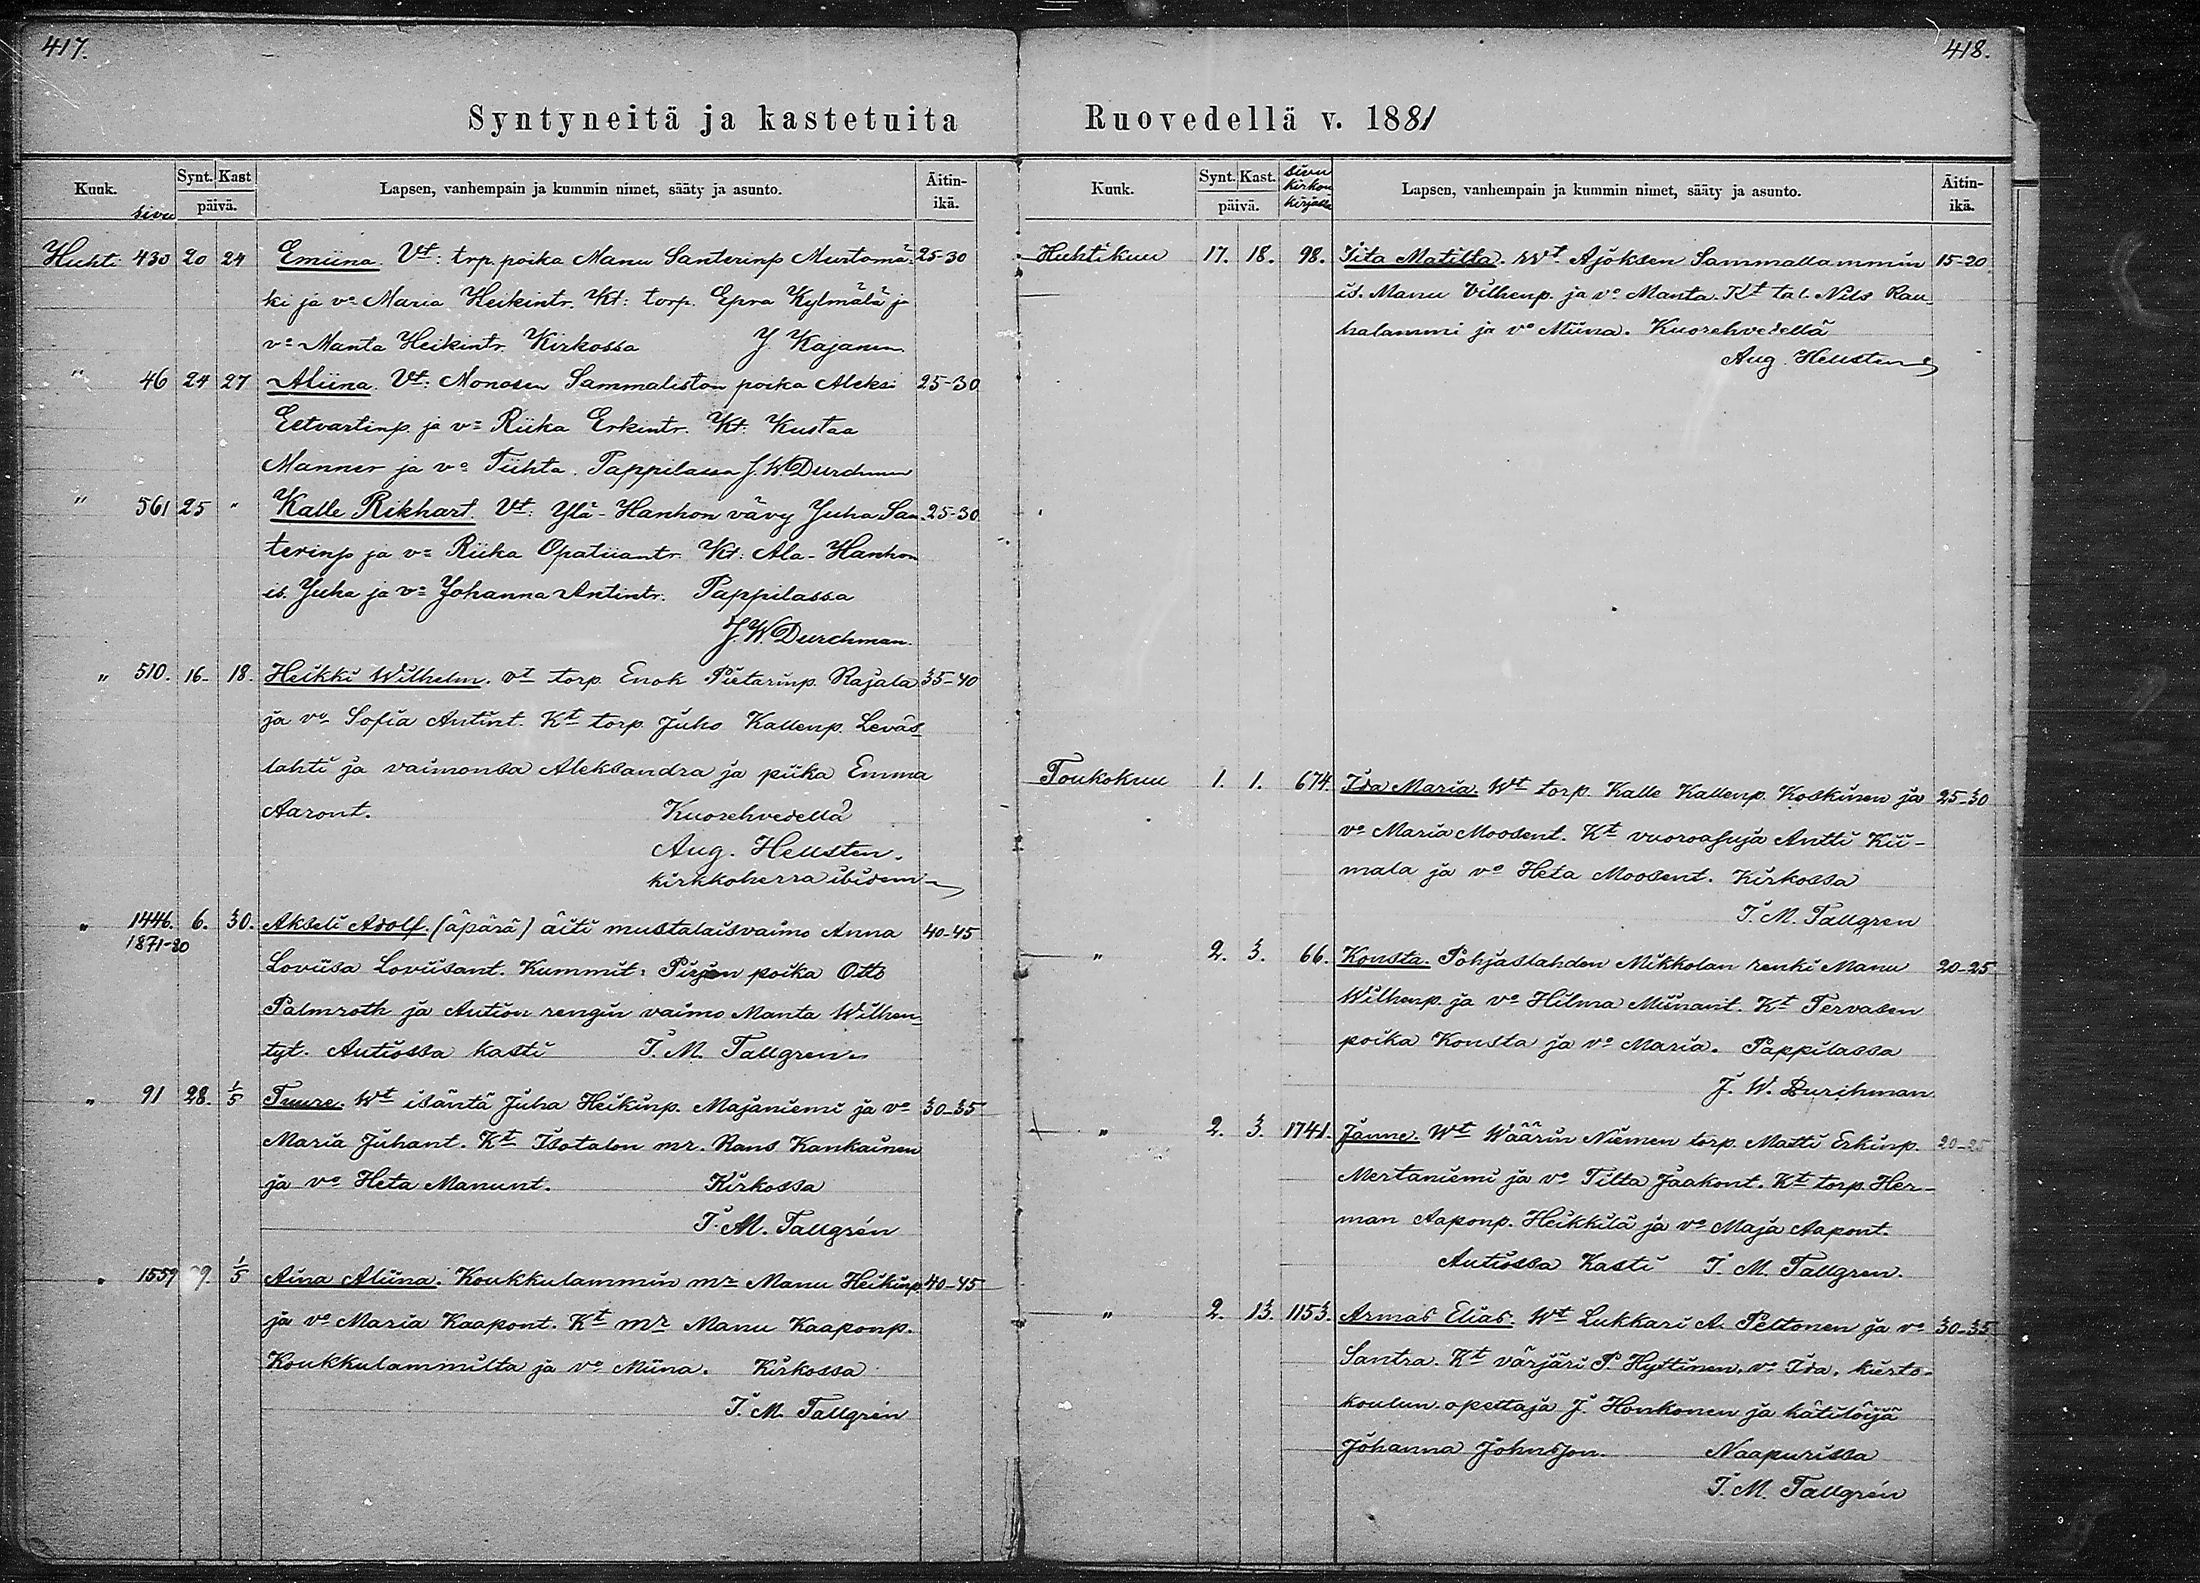 417.
Syntyneitä ja kastetuita
Kuuk.
sivu
Synt. Kast
päivä.
Lapsen, vanhempain ja kummin nimet, sääty ja asunto.
Äitin-
ikä.
Huhti 430 20 24 Emiina. Vt: trp. poika Manu Santerinp Mustamä- 25-30
ki ja vo Maria Heikintr. Kt: torp. Epra Kylmälä ja
vo Manta Heikintr. Kirkossa Y Kajanen.
" 46 24 27 Aliina. Vt: Monosen Sammaliston poika Aleksi 25-30
Eetvartinp ja vo Riika Erkintr. Kt: Kustaa
Manner ja vo Tiihta. Pappilassa J. W. Durchman
" 561 25 " Kalle Rikhart. Vt: Ylä-Hanhon vävy Juha San- 25-30
terinp ja vo Riika Opatiiantr. Kt: Ala-Hanhon
is. Juha ja vo Johanna Antintr. Pappilassa
J. W. Durchman.
" 510. 16. 18. Heikki Wilhelm. vt torp. Enok Pietarinp. Rajala 35-40
ja vo Sofia Antint. Kt torp. Juho Kallenp. Leväs-
lahti ja vaimonsa Aleksandra ja piika Emma
Aaront. Kuorehvedellä
Aug. Hellsten.
kirkkoherra ibidem
" 1446. 6. 30. Akseli Adolf. (äpärä) äiti mustalaisvaimo Anna 40-45
1871-80
Loviisa Loviisant. Kummit: Pirjen poika Otto
Palmroth ja Aution rengin vaimo Manta Wilhen-
tyt. Autiossa kasti I. M. Tallgren.
" 91 28. 1/5 Tuure. Wt isäntä Juha Heikinp. Majaniemi ja vo 30-35
Maria Juhant. Kt Isotalon mr. Rans Kankainen
ja vo Heta Manunt. Kirkossa
I. M. Tallgrén
" 1559 9. 1/5 Aina Aliina. Koukkulammin mr Manu Heikinp. 40-45
ja vo Maria Kaapont. Kt mr Manu Kaaponp.
Koukkulammilta ja vo Miina. Kirkossa
I. M. Tallgrén
418.
Ruovedellä v. 1881
Kuuk.
Synt. Kast.
päivä.
sivu
kirkon
kirjassa
Lapsen, vanhempain ja kummin nimet, sääty ja asunto.
Äitin-
ikä.
Huhtikuu 17. 18. 98. Iita Matilta. Wt. Ajoksen Sammallammin 15-20
is. Manu Vilhenp. ja vo Manta. Kt tal. Nils Rau-
halammi ja vo Miina. Kuorehvedellä
Aug. Hellsten
Toukokuu 1. 1. 674. Ida Maria. Wt torp. Kalle Kallenp. Koskinen ja 25-30
vo Maria Moosent. Kt vuoroajuja Antti Kii-
mala ja vo Heta Moosent. Kirkossa
I. M. Tallgren
" 2. 3. 66. Konsta. Pohjaslahden Mikkolan renki Manu 20-25
Wilhenp. ja vo Hilma Miinant. Kt Tervasen
poika Konsta ja vo Maria. Pappilassa
J. W. Durchman
" 2. 3. 1741. Janne. Wt Wäärin Niemen torp. Matti Erkinp. 20-25
Mertaniemi ja vo Tilta Jaakont. Kt torp. Her-
man Aaponp. Heikkilä ja vo Maja Aapont.
Autiossa Kasti I. M. Tallgren.
" 2. 13. 1153. Armas Elias. Wt Lukkari A. Peltonen ja vo 30-35
Santra. Kt värjäri P. Hyttinen, vo Ida, kierto-
koulun opettaja J. Honkonen ja kätilöijä
Johanna Johnsson. Naapurissa
I. M. Tallgrén